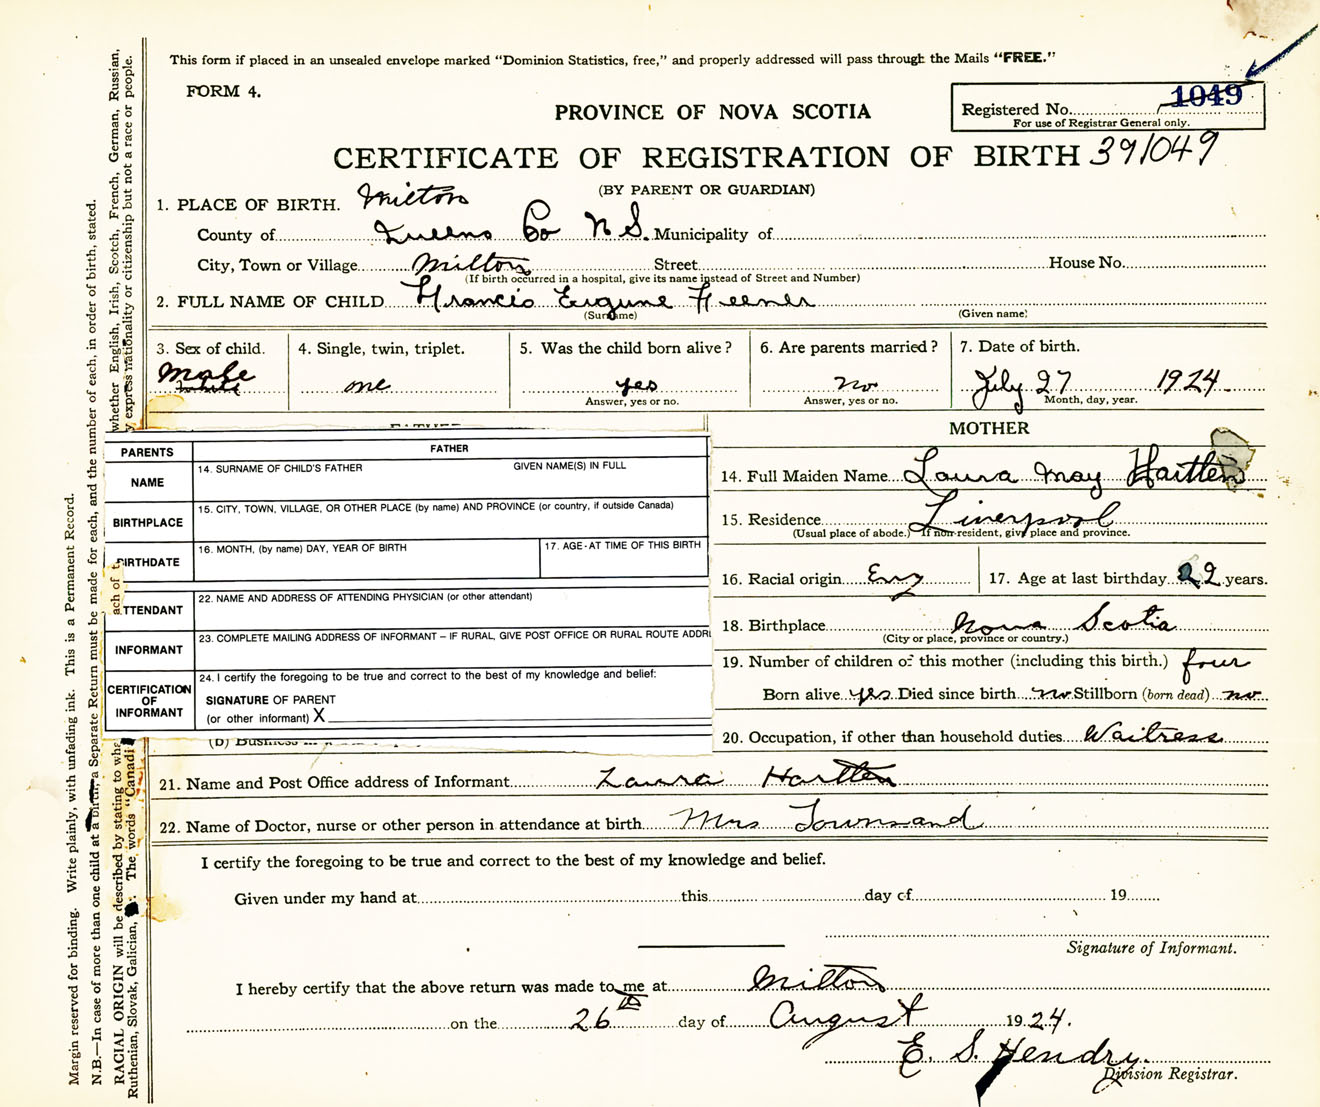 This form if placed in an unsealed envelope marked "Dominion Statistics, free," and properly addressed will pass through the Mails "FREE."
FORM 4.
1049
Registered No.
For use of Registrar General only.
PROVINCE OF NOVA SCOTIA
CERTIFICATE OF REGISTRATION OF BIRTH 391049
(BY PARENT OR GUARDIAN)
1. PLACE OF BIRTH. Milton
County of Queens Co N.S. Municipality of
City, Town or Village Milton Street House No.
(If birth occurred in a hospital, give its name instead of Street and Number)
2. FULL NAME OF CHILD Francis Eugune Feener
(Surname) (Given name)
3. Sex of child. 4. Single, twin, triplet. 5. Was the child born alive? 6. Are parents married? 7. Date of birth.
Male one yes no July 27 1924
Answer, yes or no. Answer, yes or no. Month, day, year.
MOTHER
PARENTS FATHER
NAME 14. SURNAME OF CHILD'S FATHER GIVEN NAME(S) IN FULL
BIRTHPLACE 15. CITY, TOWN, VILLAGE, OR OTHER PLACE (by name) AND PROVINCE (or country, if outside Canada)
BIRTHDATE 16. MONTH, (by name) DAY, YEAR OF BIRTH 17. AGE-AT TIME OF THIS BIRTH
TTENDANT 22. NAME AND ADDRESS OF ATTENDING PHYSICIAN (or other attendant)
INFORMANT 23. COMPLETE MAILING ADDRESS OF INFORMANT – IF RURAL, GIVE POST OFFICE OR RURAL ROUTE ADDR
CERTIFICATION OF INFORMANT 24. I certify the foregoing to be true and correct to the best of my knowledge and belief:
SIGNATURE OF PARENT
(or other informant) X
(b) Business
14. Full Maiden Name Laura May Hartlen
15. Residence Liverpool
(Usual place of abode.) If non-resident, give place and province.
16. Racial origin Eng 17. Age at last birthday 22 years.
18. Birthplace Nova Scotia
(City or place, province or country.)
19. Number of children of this mother (including this birth.) four
Born alive yes Died since birth no Stillborn (born dead) no
20. Occupation, if other than household duties Waitress
21. Name and Post Office address of Informant Laura Hartlen
22. Name of Doctor, nurse or other person in attendance at birth Mrs Townsand
I certify the foregoing to be true and correct to the best of my knowledge and belief.
Given under my hand at this day of 19
Signature of Informant.
I hereby certify that the above return was made to me at Milton
on the 26th day of August 1924.
E. S. Hendry.
Division Registrar.
Margin reserved for binding. Write plainly, with unfading ink. This is a Permanent Record.
N.B.—In case of more than one child at a birth, a Separate Return must be made for each, and the number of each, in order of birth, stated.
RACIAL ORIGIN will be described by stating to wha ach of t whether English, Irish, Scotch, French, German, Russian,
Ruthenian, Slovak, Galician, The words "Canadi y express nationality or citizenship but not a race or people.